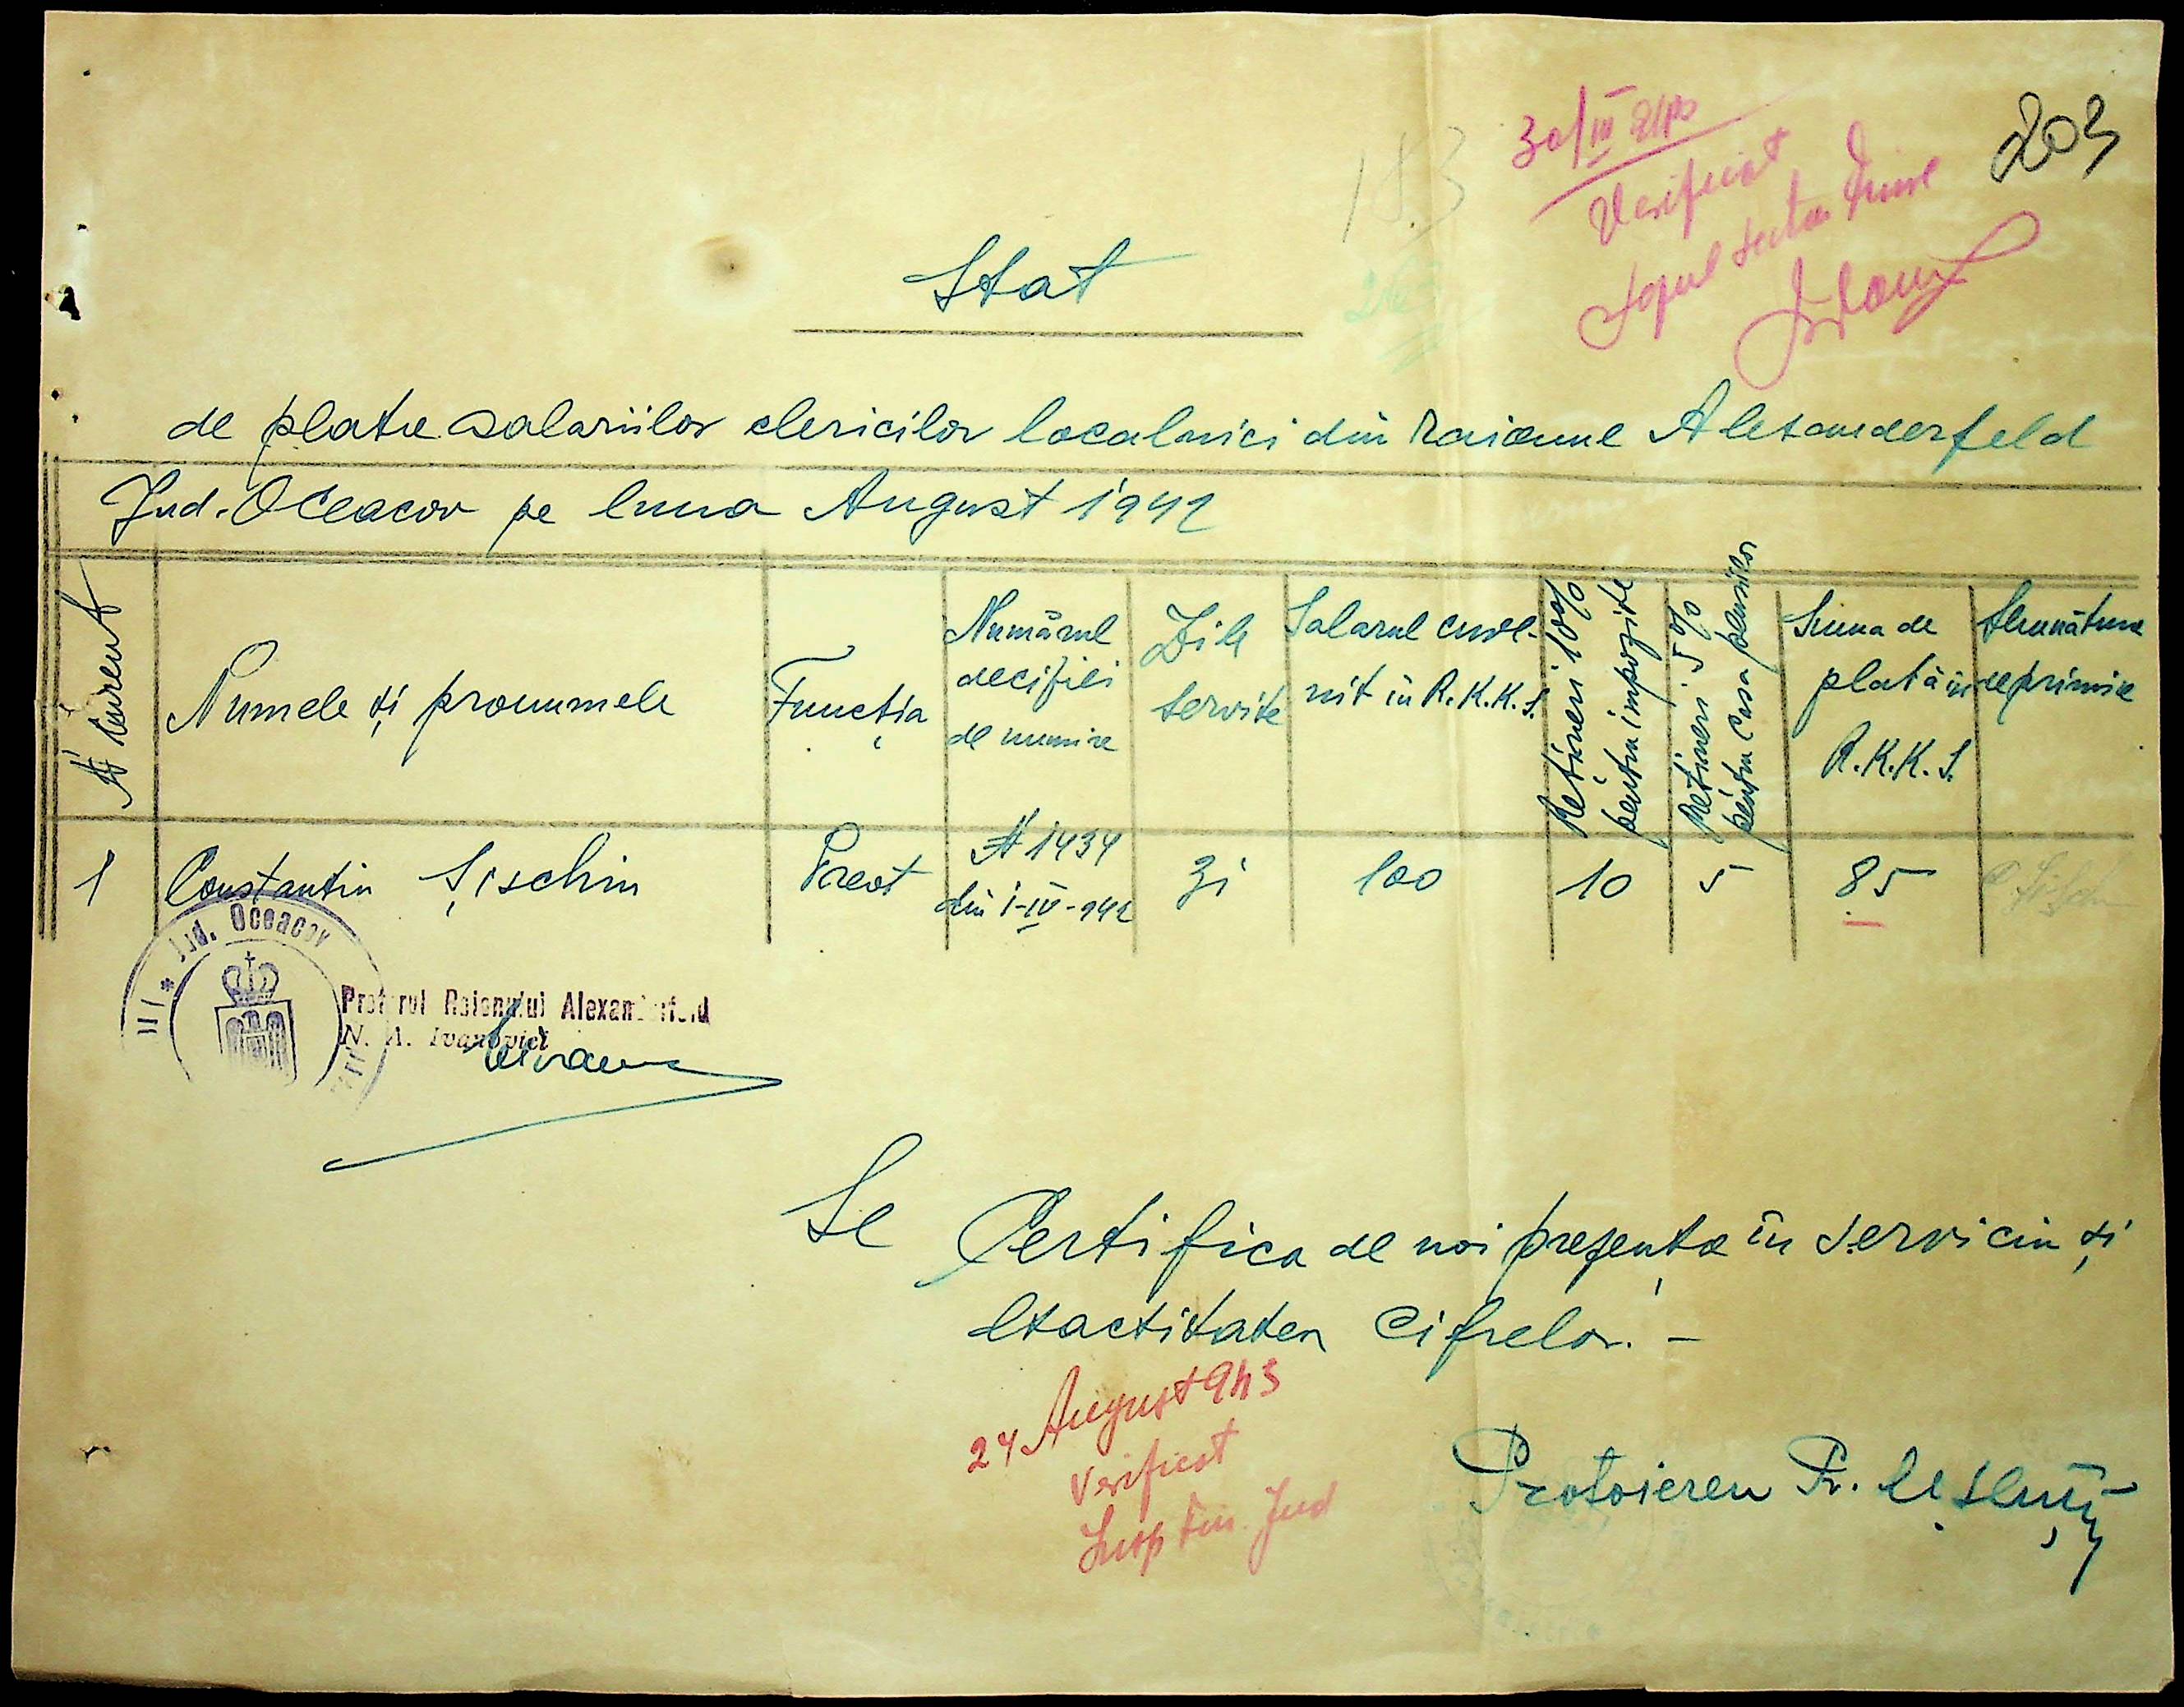 203
30/III
Verificat
183
Stat
de plata salariilor clericilor localnici din raionul Alexanderfeld
Jud. Oceacov pe luna August 1942
№ Curent
Numele și pronumele
Funcția
Numărul
deciziei
de numire
Zile
servite
Salarul cuve-
nit în R.K.K.S.
Rețineri 10%
pentru impozite
Rețineri 5%
pentru Casa pensiilor
Suma de
plată în
R.K.K.S.
Semnătura
de primire
1 Constantin Șischin Preot № 1434 din 1-IV-942 31 100 10 5 85
Jud. Oceacov
Pretorul Raionului Alexanderfeld
N. A. Ivanovici
Se Certifica de noi prezența în serviciu și
exactitatea cifrelor. –
24 August 943
Verificat
Insp Fin. Jud
Protoiereu Pr.